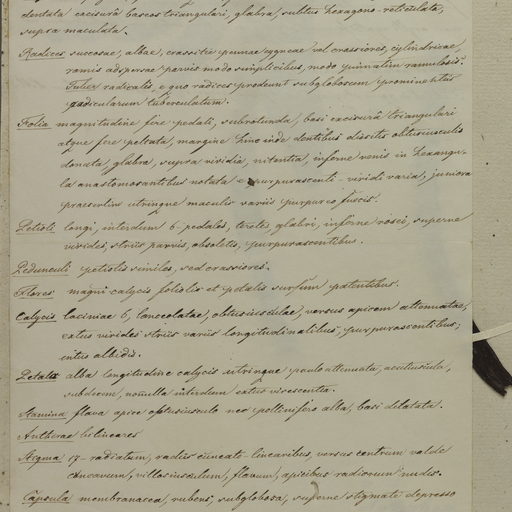 dentata excisurâ baseos triangulari, glabra, subtus hexagono-reticulata,
supra maculata.
Radices succosae, albae, crassitie pennae cygneae vel crassiores, cylindricae,
ramis adspersae parvis modo simplicibus, modo pinnatim ramulosis.
Tuber radicalis, e quo radices prodeunt subglobosum prominentiis
radicularum tuberculatum.
Folia magnitudine fere pedali, subrotunda, basi excisurâ triangulari
atque fere peltata, margine hinc inde dentibus dissitis obtusiusculis
donata, glabra, supra viridia, nitentia, inferne venis in hexangu-
la anastomosantibus notata e purpurascenti-viridi varia, juniora
praesertim utringue maculis variis purpureo fuscis.
Petioli longi, interdum 6-pedales, teretes, glabri, inferne rosei, superne
virides, striis parvis, obsoletis, purpurascentibus.
Pedunculi petiolis similes, sed crassiores.
Flores magni calycis foliolis et petalis sursum patentibus.
Calycis laciniae 6, lanceolatae, obtusiusculae, versus apicem attenuatae,
extus virides striis variis longitudinalibus, purpurascentibus,
intus albidis.
Petala alba longitudine calycis utringue paulo attenuata, acutiuscula,
subdecem, nonnulla interdum extus virescentia.
Stamina flava apice obtusiusculo nec pollinifero alba, basi dilatata.
Antherae bilineares
Stigma 17-radiatum, radiis cuneato-linearibus, versus centrum valde
concavum, villosiusculum, flavum, apicibus radiorum nudis.
Capsula membranacea, rubens, subglobosa, superne stigmate depresso